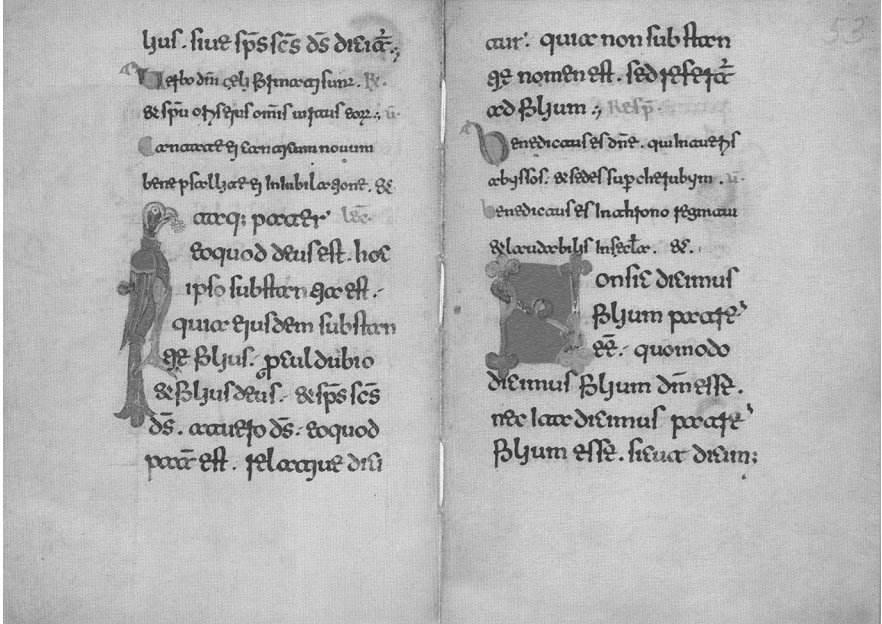 lius. sive sp̄s sc̄s d̄s dicat̄.,
Verbo dn̄i celi firmati sunt. R.
& sp̄u oris eius om̄is virtus eorz., v̄.
Cantate ei canticum novum
bene psallite ei In Iubilatione. &
atq; pater lec̄.
eoquod deus est. hoc
ipso substantia est.
quia eiusdem substan
tie filius. procul dubio
& filius deus. & sp̄s sc̄s
d̄s. at vero d̄s. eoquod
pat̄ est. relatique dici
53
tur. quia non substan
tie nomen est. sed refert̄
ad filium., Resp̄.
Benedictus es dn̄e. qui Intueris
abyssos. & sedes sup̱ cherubym. v̄.
Benedictus es In throno regni tui
& laudabilis In secl̄a. &.
Non sic dicimus
filium patre'
ēē. quomodo
dicimus filium dn̄i esse.
nec Ita dicimus patre'
filium esse. sicut dicim;